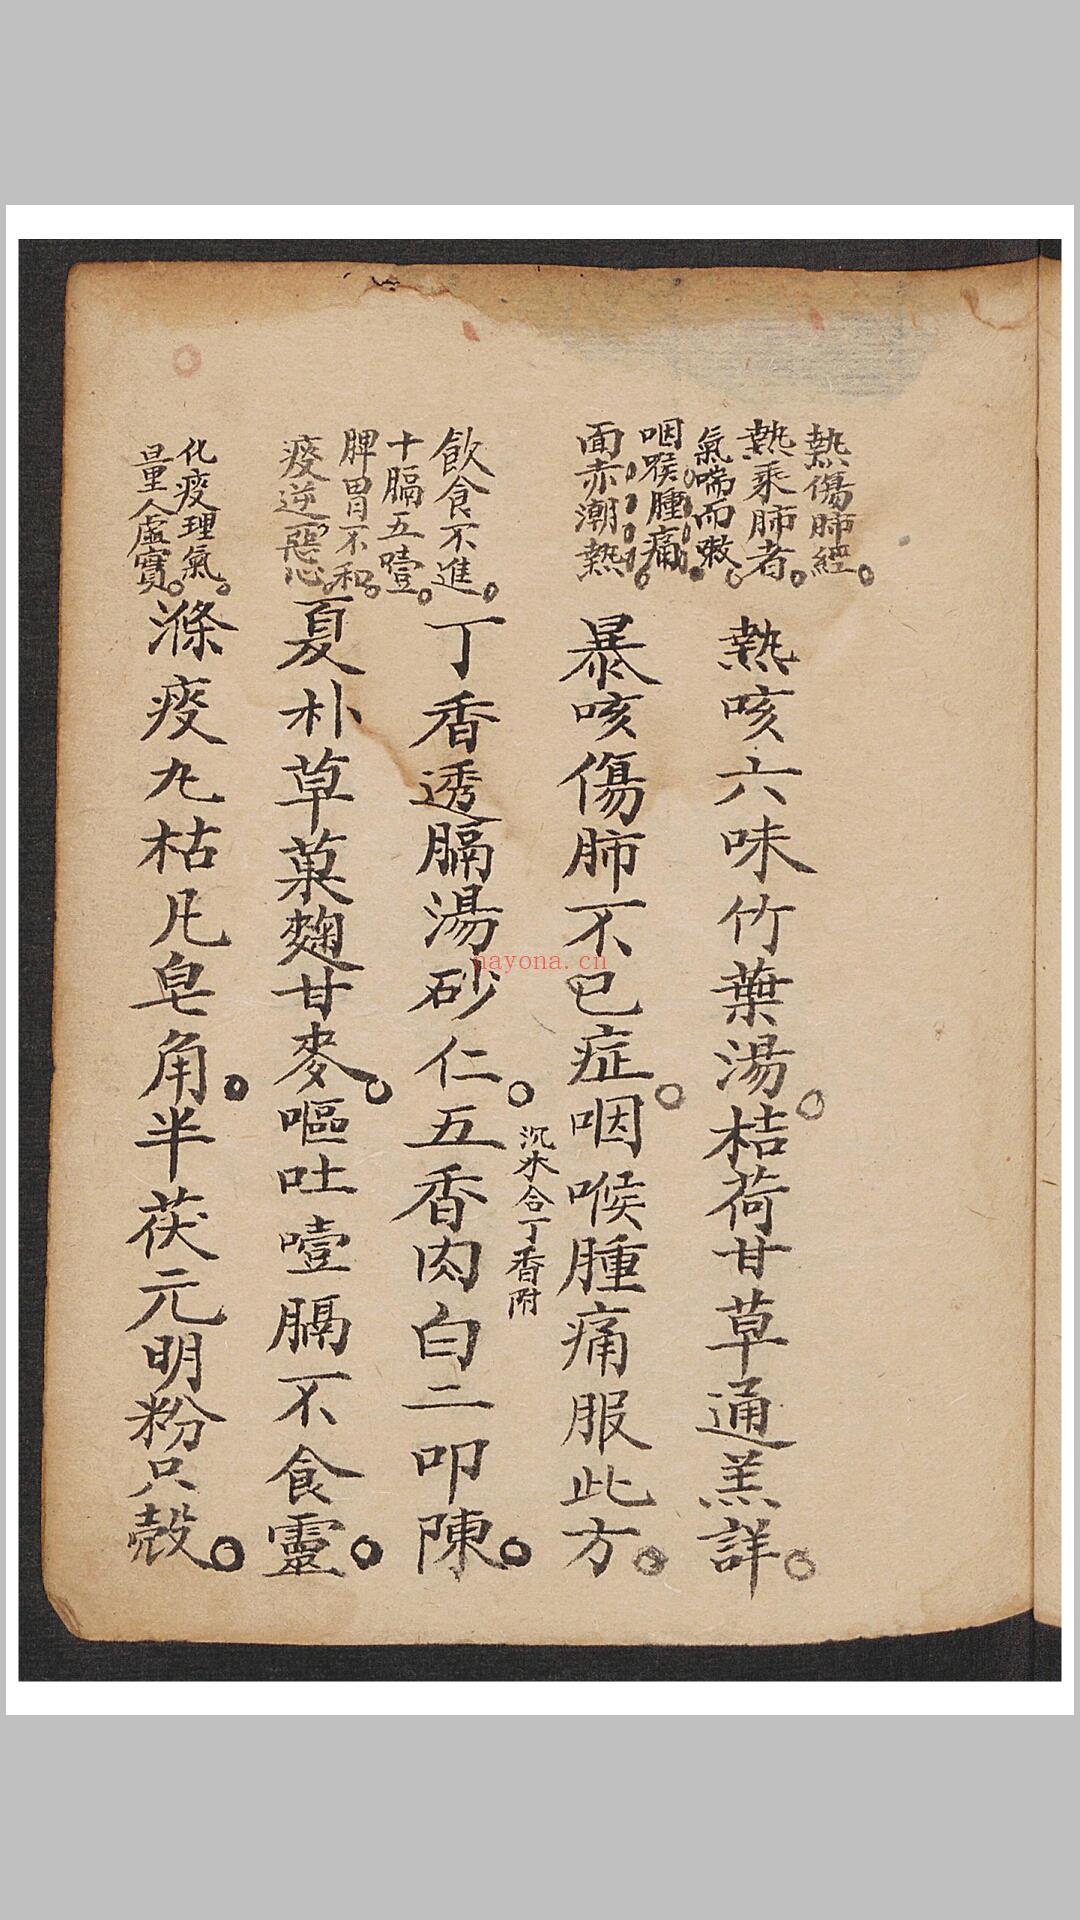 熱傷肺經
熱乘肺者
氣喘而嗽
熱咳六味竹葉湯桔荷甘草通羔詳
咽喉腫痛
面赤潮熱
暴咳傷肺不已症咽喉腫痛服此方
沉水合丁香附
飲食不進
十膈五噎
丁香透膈湯砂仁五香肉白二叩陳
脾胃不和
痰逆惡心
夏朴草菓麴甘麥嘔吐噎膈不食靈
化痰理氣
量人虛實
滌痰丸枯凡皂角半茯元明粉只殼
nayona.cn